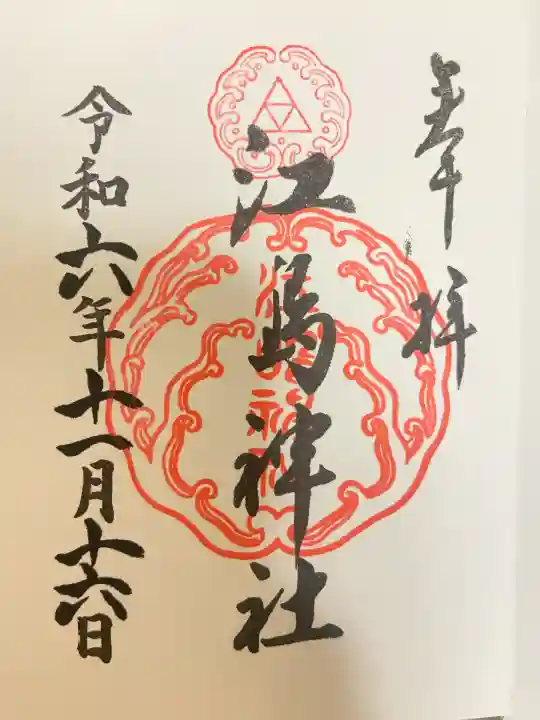 奉拝
江島神社
令和六年十一月十六日